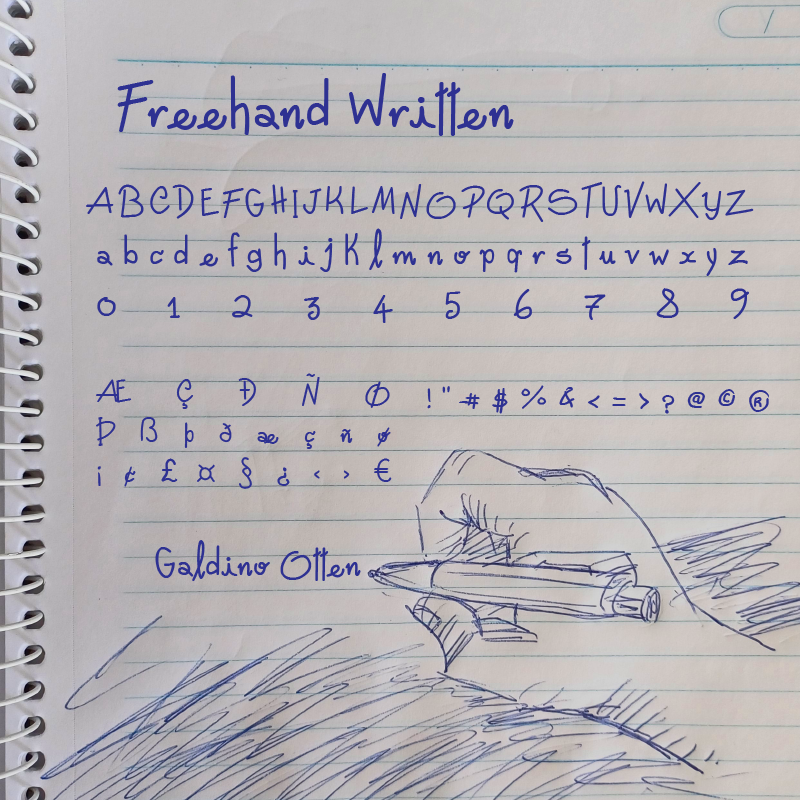 Freehand Written
ABCDEFGHIJKLMNOPQRSTUVWXYZ
a b c d e f g h i j k l m n o p q r s t u v w x y z
0 1 2 3 4 5 6 7 8 9
Æ Ç Ð Ñ Ø ! " # $ % & < = > ? @ © ®
Þ ß þ ð æ ç ñ ø
¡ ¢ £ ¤ § ¿ ‹ › €
Galdino Otten